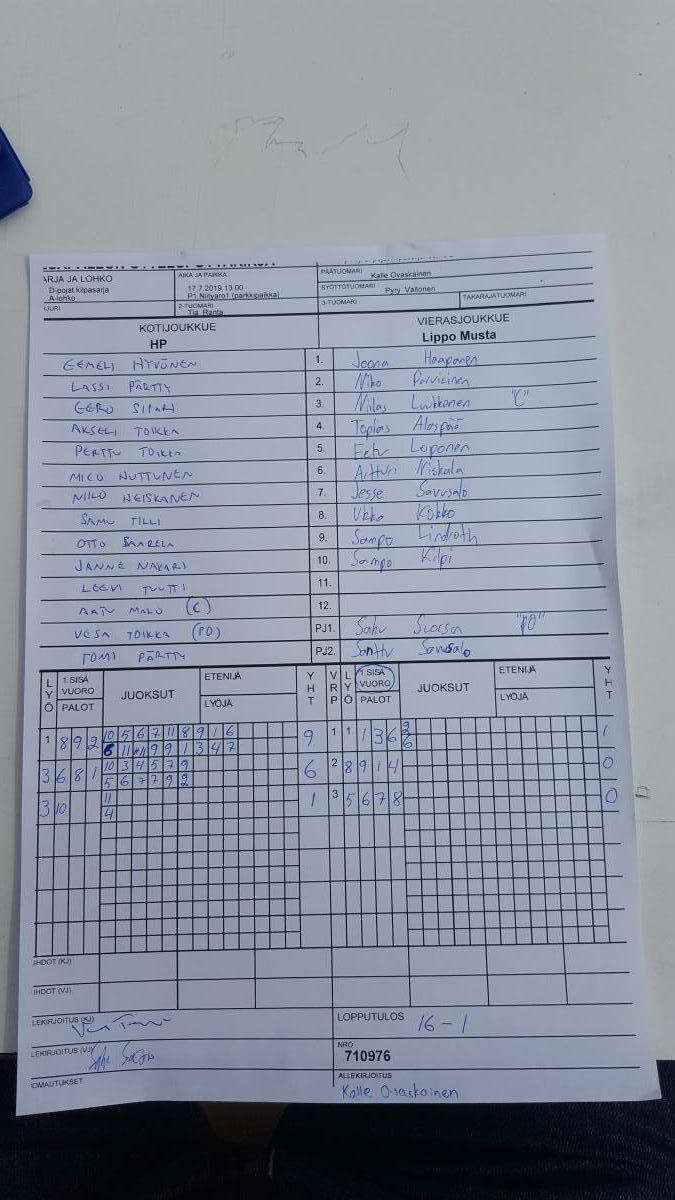 ARJA JA LOHKO
D-pojat kilpasarja
A-lohko
AIKA JA PAIKKA
17.7.2019 13.00
P1 Niityaro1 (parkkipaikka)
2-TUOMARI
Tia Ranta
PÄÄTUOMARI Kalle Ovaskainen
SYÖTTÖTUOMARI Pyry Valtonen
3-TUOMARI TAKARAJATUOMARI
KOTIJOUKKUE VIERASJOUKKUE
HP Lippo Musta
EEMELI HYVÖNEN 1. Joona Haaponen
LASSI PÄRTTY 2. Niko Parviainen
EERO SIPARI 3. Niilas Luukkonen "C"
AKSELI TOIKKA 4. Topias Alaspää
PERTTU TOIKKA 5. Eetu Loponen
MICO HUTTUNEN 6. Artturi Niskala
NIILO HEISKANEN 7. Jesse Savusalo
SAMU TILLI 8. Ukko Kokko
OTTO SAARELA 9. Sampo Lindroth
JANNE NAKARI 10. Sampo Kilpi
LEEVI TUUTTI 11.
AATU MALO (C) 12.
VESA TOIKKA (PO) PJ1. "PO"
TOMI PÄRTTY PJ2. Santtu Savusalo
LYÖ 1.SISÄ VUORO PALOT JUOKSUT ETENIJÄ LYÖJÄ YHT VRP LYÖ 1.SISÄ VUORO PALOT JUOKSUT ETENIJÄ LYÖJÄ YHT
1 8 9 2 10 5 6 7 11 8 9 1 6 9 1 1 1 3 6 1
9 9 1 3 4 7
3 6 8 1 10 3 4 5 7 9 6 2 8 9 1 4 0
5 6 7 7 9 2
3 10 11 1 3 5 6 7 8 0
4
HDOT (KJ)
HDOT (VJ)
LEKIRJOITUS (KJ)
LOPPUTULOS 16 - 1
LEKIRJOITUS (VJ)
NRO
710976
OMAUTUKSET
ALLEKIRJOITUS
Kalle Ovaskainen